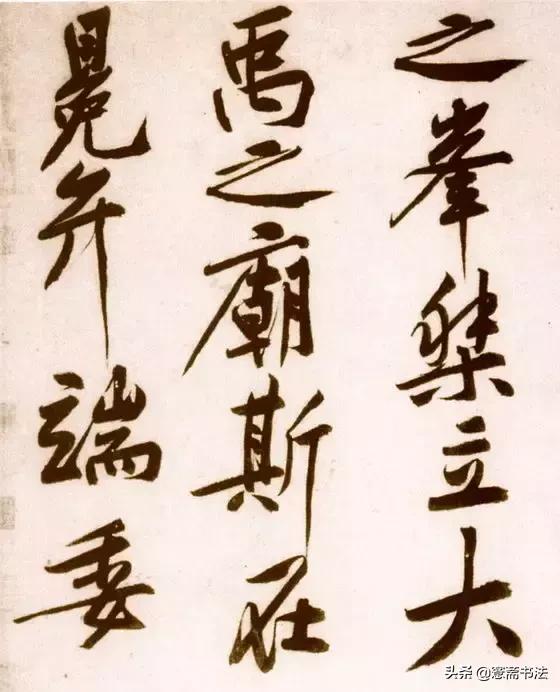 之峯桀立大
禹之廟斯在
冕弁端委
头条 @斋书法